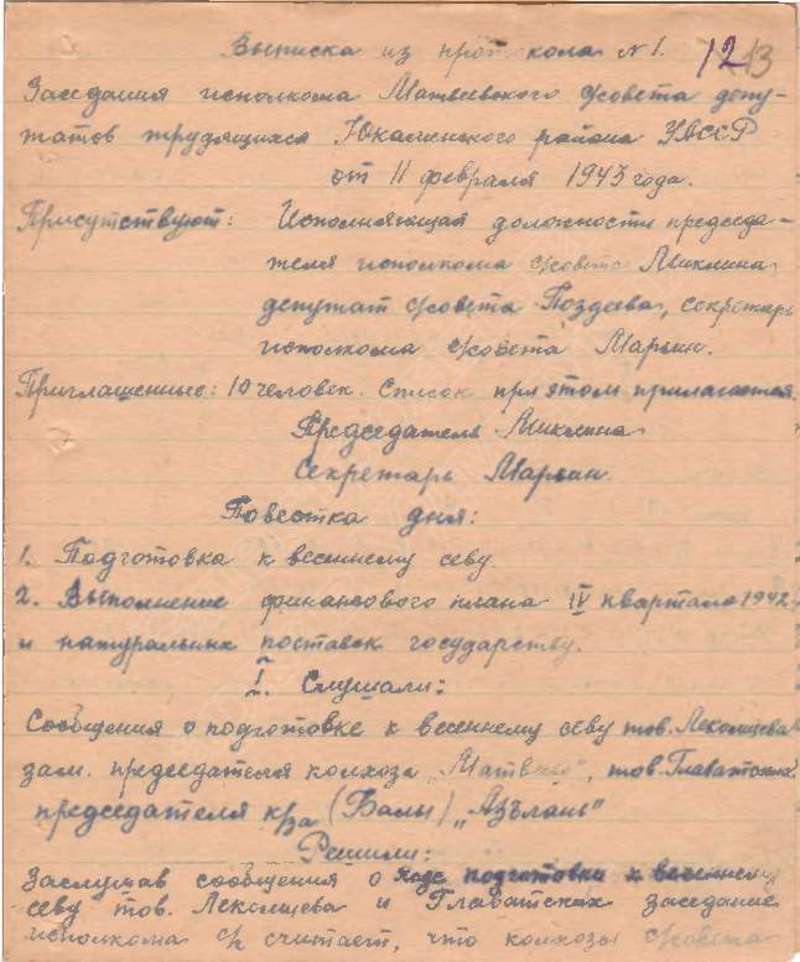 Выписка из протокола №1.
12 13
Заседания исполкома Матвеевского с/совета депу-
татов трудящихся Юкаменского района УАССР
от 11 февраля 1943 года.
Присутствуют: Исполняющая должности председа-
теля исполкома с/совета Миклина
депутат с/совета Поздеева, секретарь
исполкома с/совета Марьин.
Приглашенные: 10 человек. Список при этом прилагается.
Председатель Миклина
Секретарь Марьин.
Повестка дня:
1. Подготовка к весеннему севу.
2. Выполнение финансового плана IV квартала 1942
и натуральных поставок государству.
I. Слушали:
Сообщения о подготовке к весеннему севу тов. Лекомцева
зам. председателя колхоза „Матвей", тов. Главатских
председателя к/за (Балы) „Азьлань"
Решили:
Заслушав сообщения о ходе подготовки к весеннему
севу тов. Лекомцева и Главатских заседание
исполкома с/с считает, что колхозы с/совета